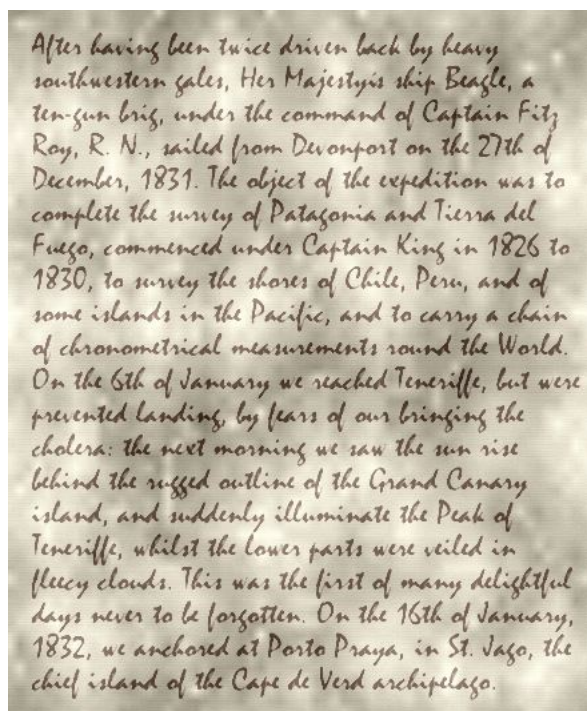 After having been twice driven back by heavy
southwestern gales, Her Majestyis ship Beagle, a
ten-gun brig, under the command of Captain Fitz
Roy, R. N., sailed from Devonport on the 27th of
December, 1831. The object of the expedition was to
complete the survey of Patagonia and Tierra del
Fuego, commenced under Captain King in 1826 to
1830, to survey the shores of Chile, Peru, and of
some islands in the Pacific, and to carry a chain
of chronometrical measurements round the World.
On the 6th of January we reached Teneriffe, but were
prevented landing, by fears of our bringing the
cholera: the next morning we saw the sun rise
behind the rugged outline of the Grand Canary
island, and suddenly illuminate the Peak of
Teneriffe, whilst the lower parts were veiled in
fleecy clouds. This was the first of many delightful
days never to be forgotten. On the 16th of January,
1832, we anchored at Porto Praya, in St. Jago, the
chief island of the Cape de Verd archipelago.